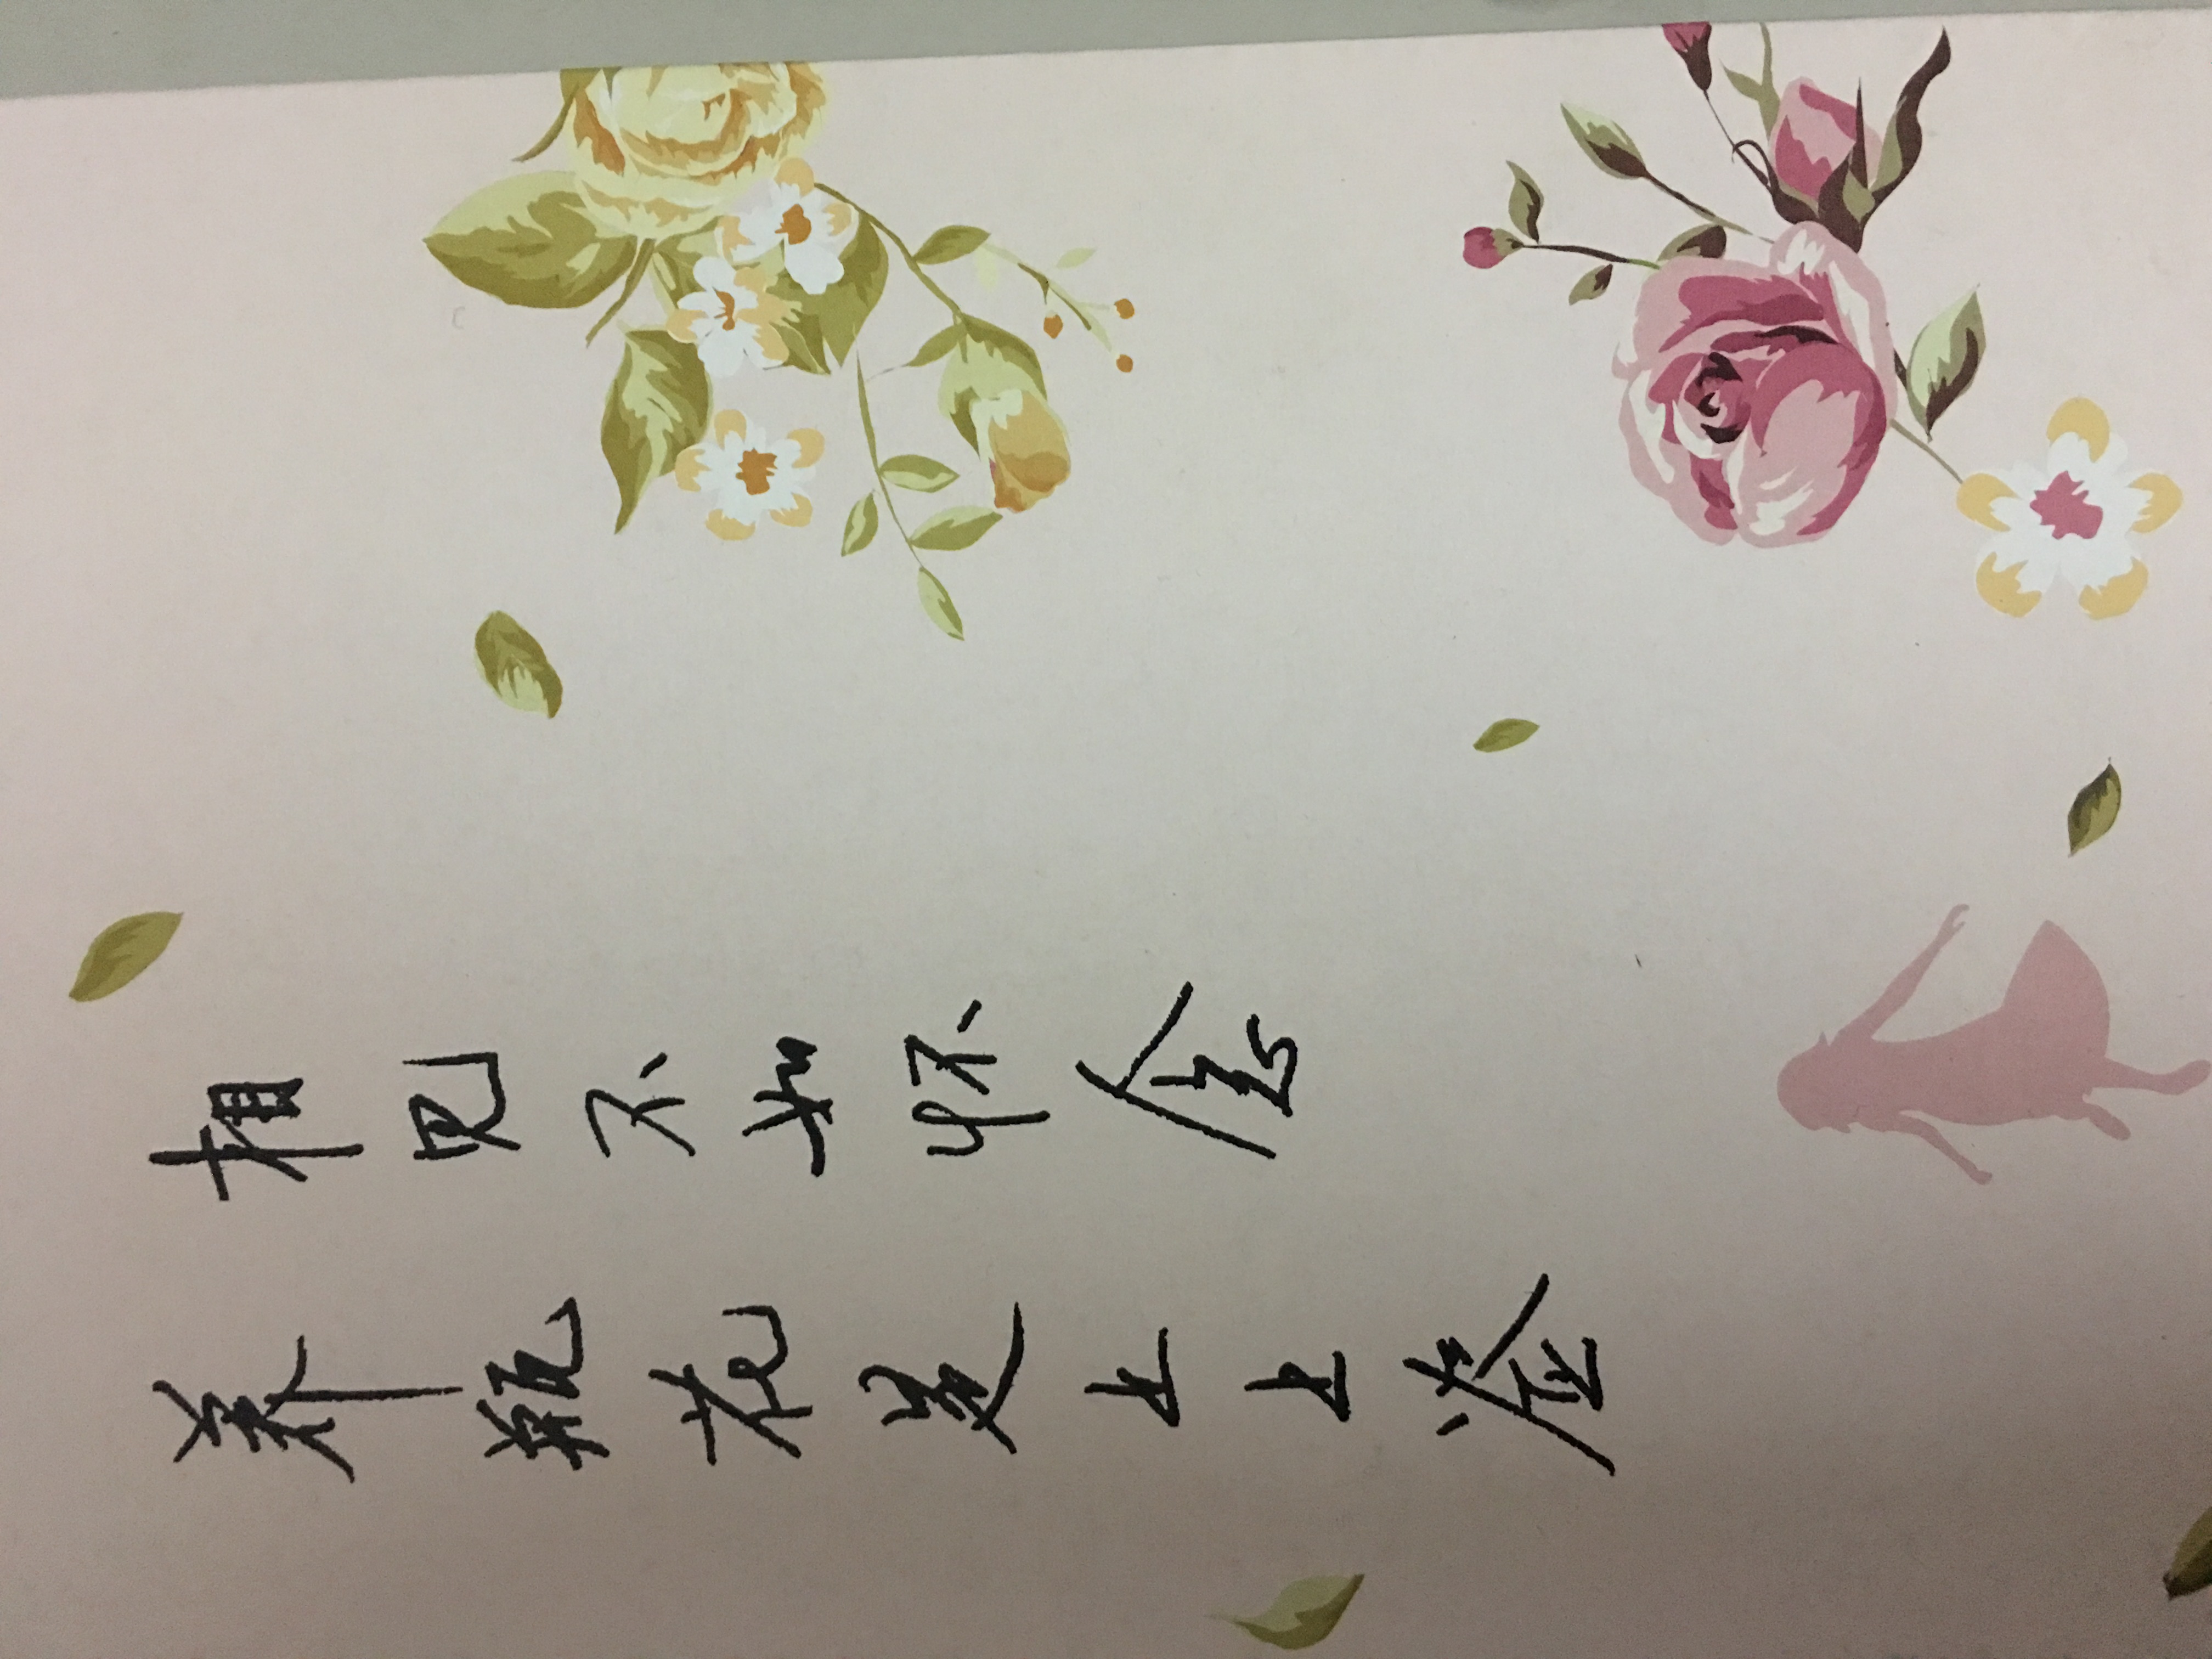 相见不如怀念
养瓶花是上上签